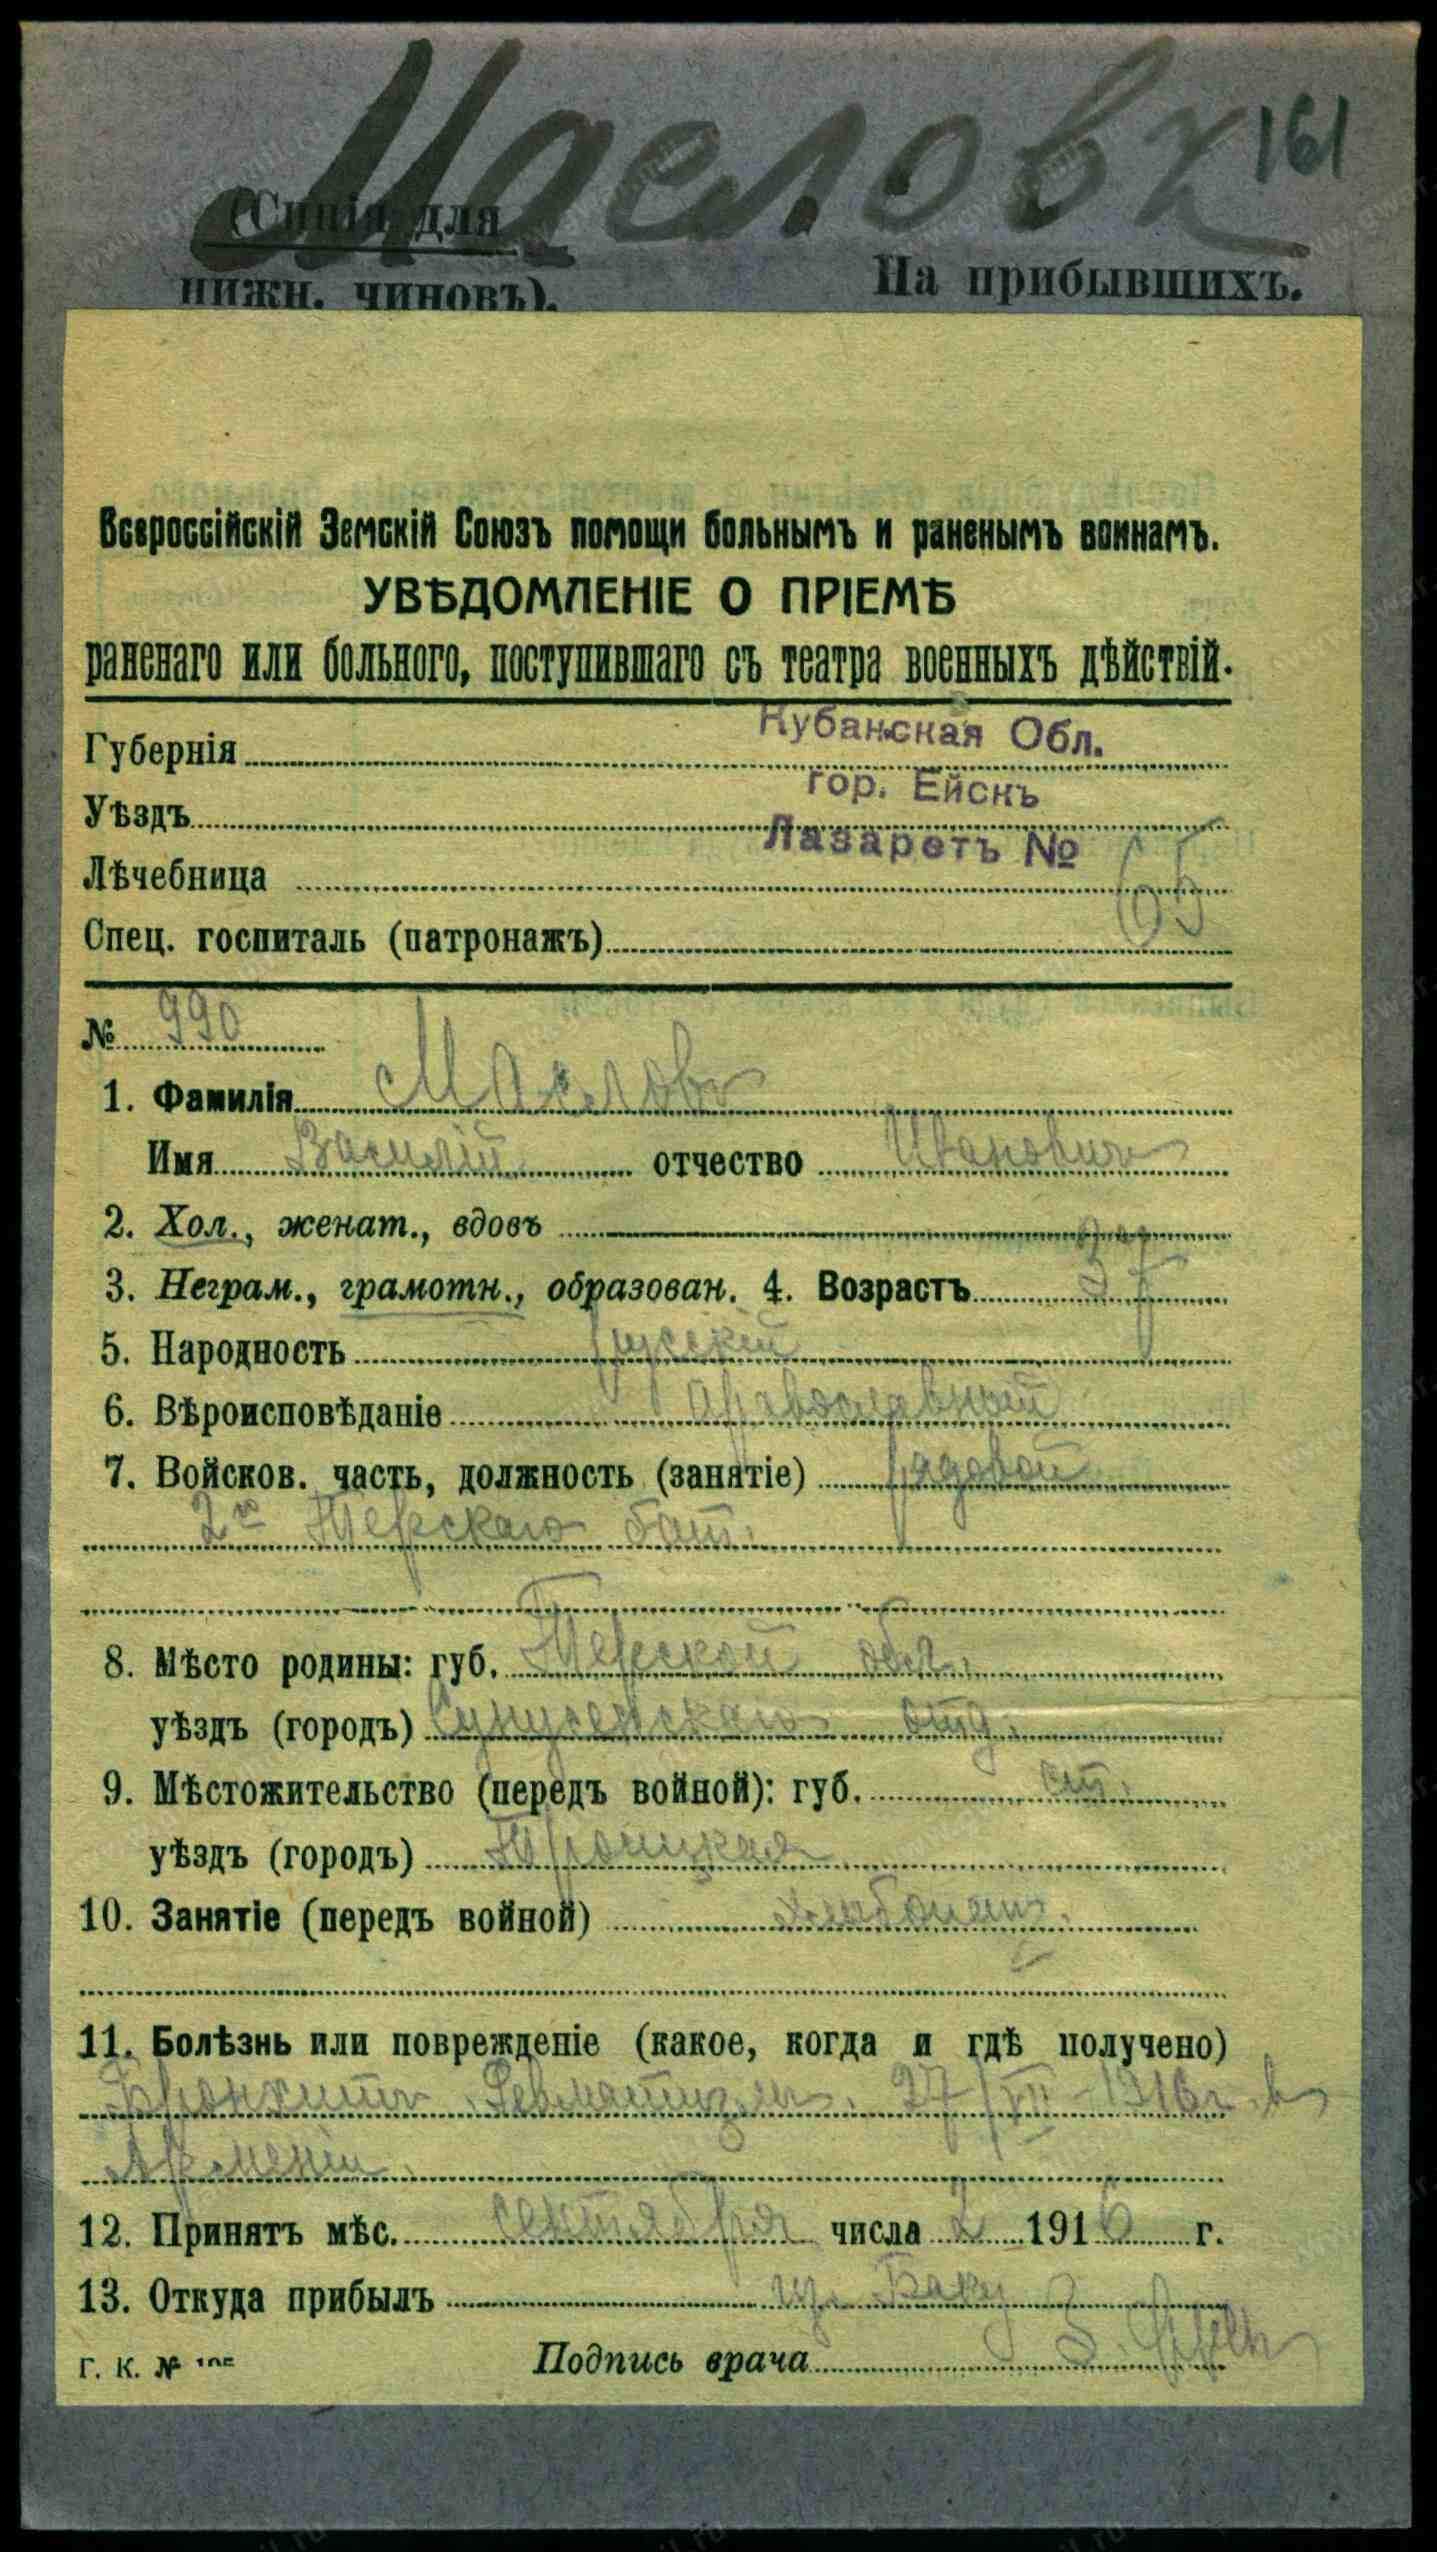 Масловъ 161
(Синія для
нижн. чиновъ).
На прибывшихъ.
Всероссійскій Земскій Союзъ помощи больнымъ и раненымъ воинамъ.
УВѢДОМЛЕНІЕ О ПРІЕМѢ
раненаго или больного, поступившаго съ театра военныхъ дѣйствій.
Губернія Кубанская Обл.
Уѣздъ гор. Ейскъ
Лѣчебница Лазаретъ № 65
Спец. госпиталь (патронажъ)
№ 990
1. Фамилія Масловъ
Имя Василій отчество Ивановичъ
2. Хол., женат., вдовъ
3. Неграм., грамотн., образован. 4. Возрастъ 37
5. Народность русскій
6. Вѣроисповѣданіе православный
7. Войсков. часть, должность (занятіе) рядовой
2го Терскаго бат.
8. Мѣсто родины: губ. Терской обл.
уѣздъ (городъ) Сунженскаго отд.
9. Мѣстожительство (передъ войной): губ. ст.
уѣздъ (городъ) Троицкая
10. Занятіе (передъ войной) хлѣбопаш.
11. Болѣзнь или поврежденіе (какое, когда и гдѣ получено)
Бронхитъ. Ревматизмъ. 27/VII-1916г. въ
Арменіи.
12. Принятъ мѣс. сентября числа 2 1916 г.
13. Откуда прибылъ изъ Баку
Г. К. № 105
Подпись врача